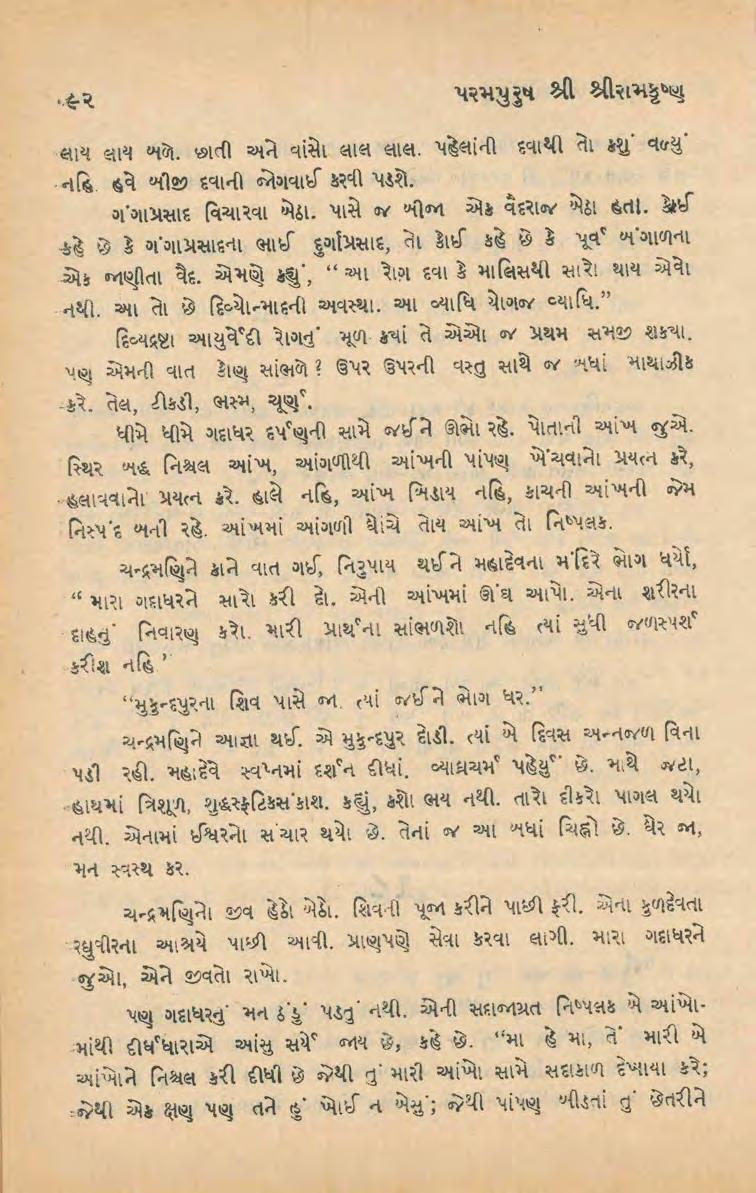 ૯૨
પરમપુરુષ શ્રી શ્રીરામકૃષ્ણ
લાય લાય બળે. છાતી અને વાંસો લાલ લાલ. પહેલાંની દવાથી તો કશું વળ્યું
નહિ. હવે બીજી દવાની જોગવાઈ કરવી પડશે.
ગંગાપ્રસાદ વિચારવા બેઠા. પાસે જ બીજા એક વૈદરાજ બેઠા હતા. કોઈ
કહે છે કે ગંગાપ્રસાદના ભાઈ દુર્ગાપ્રસાદ, તો કોઈ કહે છે કે પૂર્વ બંગાળના
એક જાણીતા વૈદ. એમણે કહ્યું, “આ રોગ દવા કે માલિસથી સારો થાય એવો
નથી. આ તો છે દિવ્યોન્માદની અવસ્થા. આ વ્યાધિ યોગજ વ્યાધિ.”
દિવ્યદ્રષ્ટા આયુર્વેદી રોગનું મૂળ કયાં તે એઓ જ પ્રથમ સમજી શકયા.
પણ એમની વાત કોણ સાંભળે? ઉપર ઉપરની વસ્તુ સાથે જ બધાં માથાઝીક
કરે. તેલ, ટીકડી, ભસ્મ, ચૂર્ણ.
ધીમે ધીમે ગદાધર દર્પણની સામે જઈને ઊભો રહે. પોતાની આંખ જુએ.
સ્થિર બદ્ધ નિશ્ચલ આંખ, આંગળીથી આંખની પાંપણ ખેંચવાનો પ્રયત્ન કરે,
હલાવવાનો પ્રયત્ન કરે. હાલે નહિ, આંખ બિડાય નહિ, કાચની આંખની જેમ
નિસ્પંદ બની રહે. આંખમાં આંગળી ઘોંચે તોય આંખ તો નિષ્પલક.
ચન્દ્રમણિને કાને વાત ગઈ, નિરુપાય થઈને મહાદેવના મંદિરે ભોગ ધર્યો,
“મારા ગદાધરને સારો કરી દો. એની આંખમાં ઊંઘ આપો. એના શરીરના
દાહનું નિવારણ કરો. મારી પ્રાર્થના સાંભળશો નહિ ત્યાં સુધી જળસ્પર્શ
કરીશ નહિ’
“મુકુન્દપુરના શિવ પાસે જા. ત્યાં જઈને ભોગ ધર.”
ચન્દ્રમણિને આજ્ઞા થઈ. એ મુકુન્દપુર દોડી. ત્યાં બે દિવસ અન્નજળ વિના
પડી રહી. મહાદેવે સ્વપ્નમાં દર્શન દીધાં. વ્યાઘ્રચર્મ પહેર્યું છે. માથે જટા,
હાથમાં ત્રિશૂળ, શુદ્ધસ્ફટિકસંકાશ. કહ્યું, કશો ભય નથી. તારો દીકરો પાગલ થયો
નથી. એનામાં ઈશ્વરનો સંચાર થયો છે. તેનાં જ આ બધાં ચિહ્નો છે. ઘેર જા,
મન સ્વસ્થ કર.
ચન્દ્રમણિનો જીવ હેઠો બેઠો. શિવની પૂજા કરીને પાછી ફરી. એના કુળદેવતા
રઘુવીરના આશ્રયે પાછી આવી. પ્રાણપણે સેવા કરવા લાગી. મારા ગદાધરને
જુઓ, એને જીવતો રાખો.
પણ ગદાધરનું મન ઠંડું પડતું નથી. એની સદાજાગ્રત નિષ્પલક બે આંખો-
માંથી દીર્ઘધારાએ આંસુ સર્યે જાય છે, કહે છે. “મા હે મા, તેં મારી બે
આંખોને નિશ્ચલ કરી દીધી છે જેથી તું મારી આંખો સામે સદાકાળ દેખાયા કરે;
જેથી એક ક્ષણ પણ તને હું ખોઈ ન બેસું; જેથી પાંપણ બીડતાં તું છેતરીને